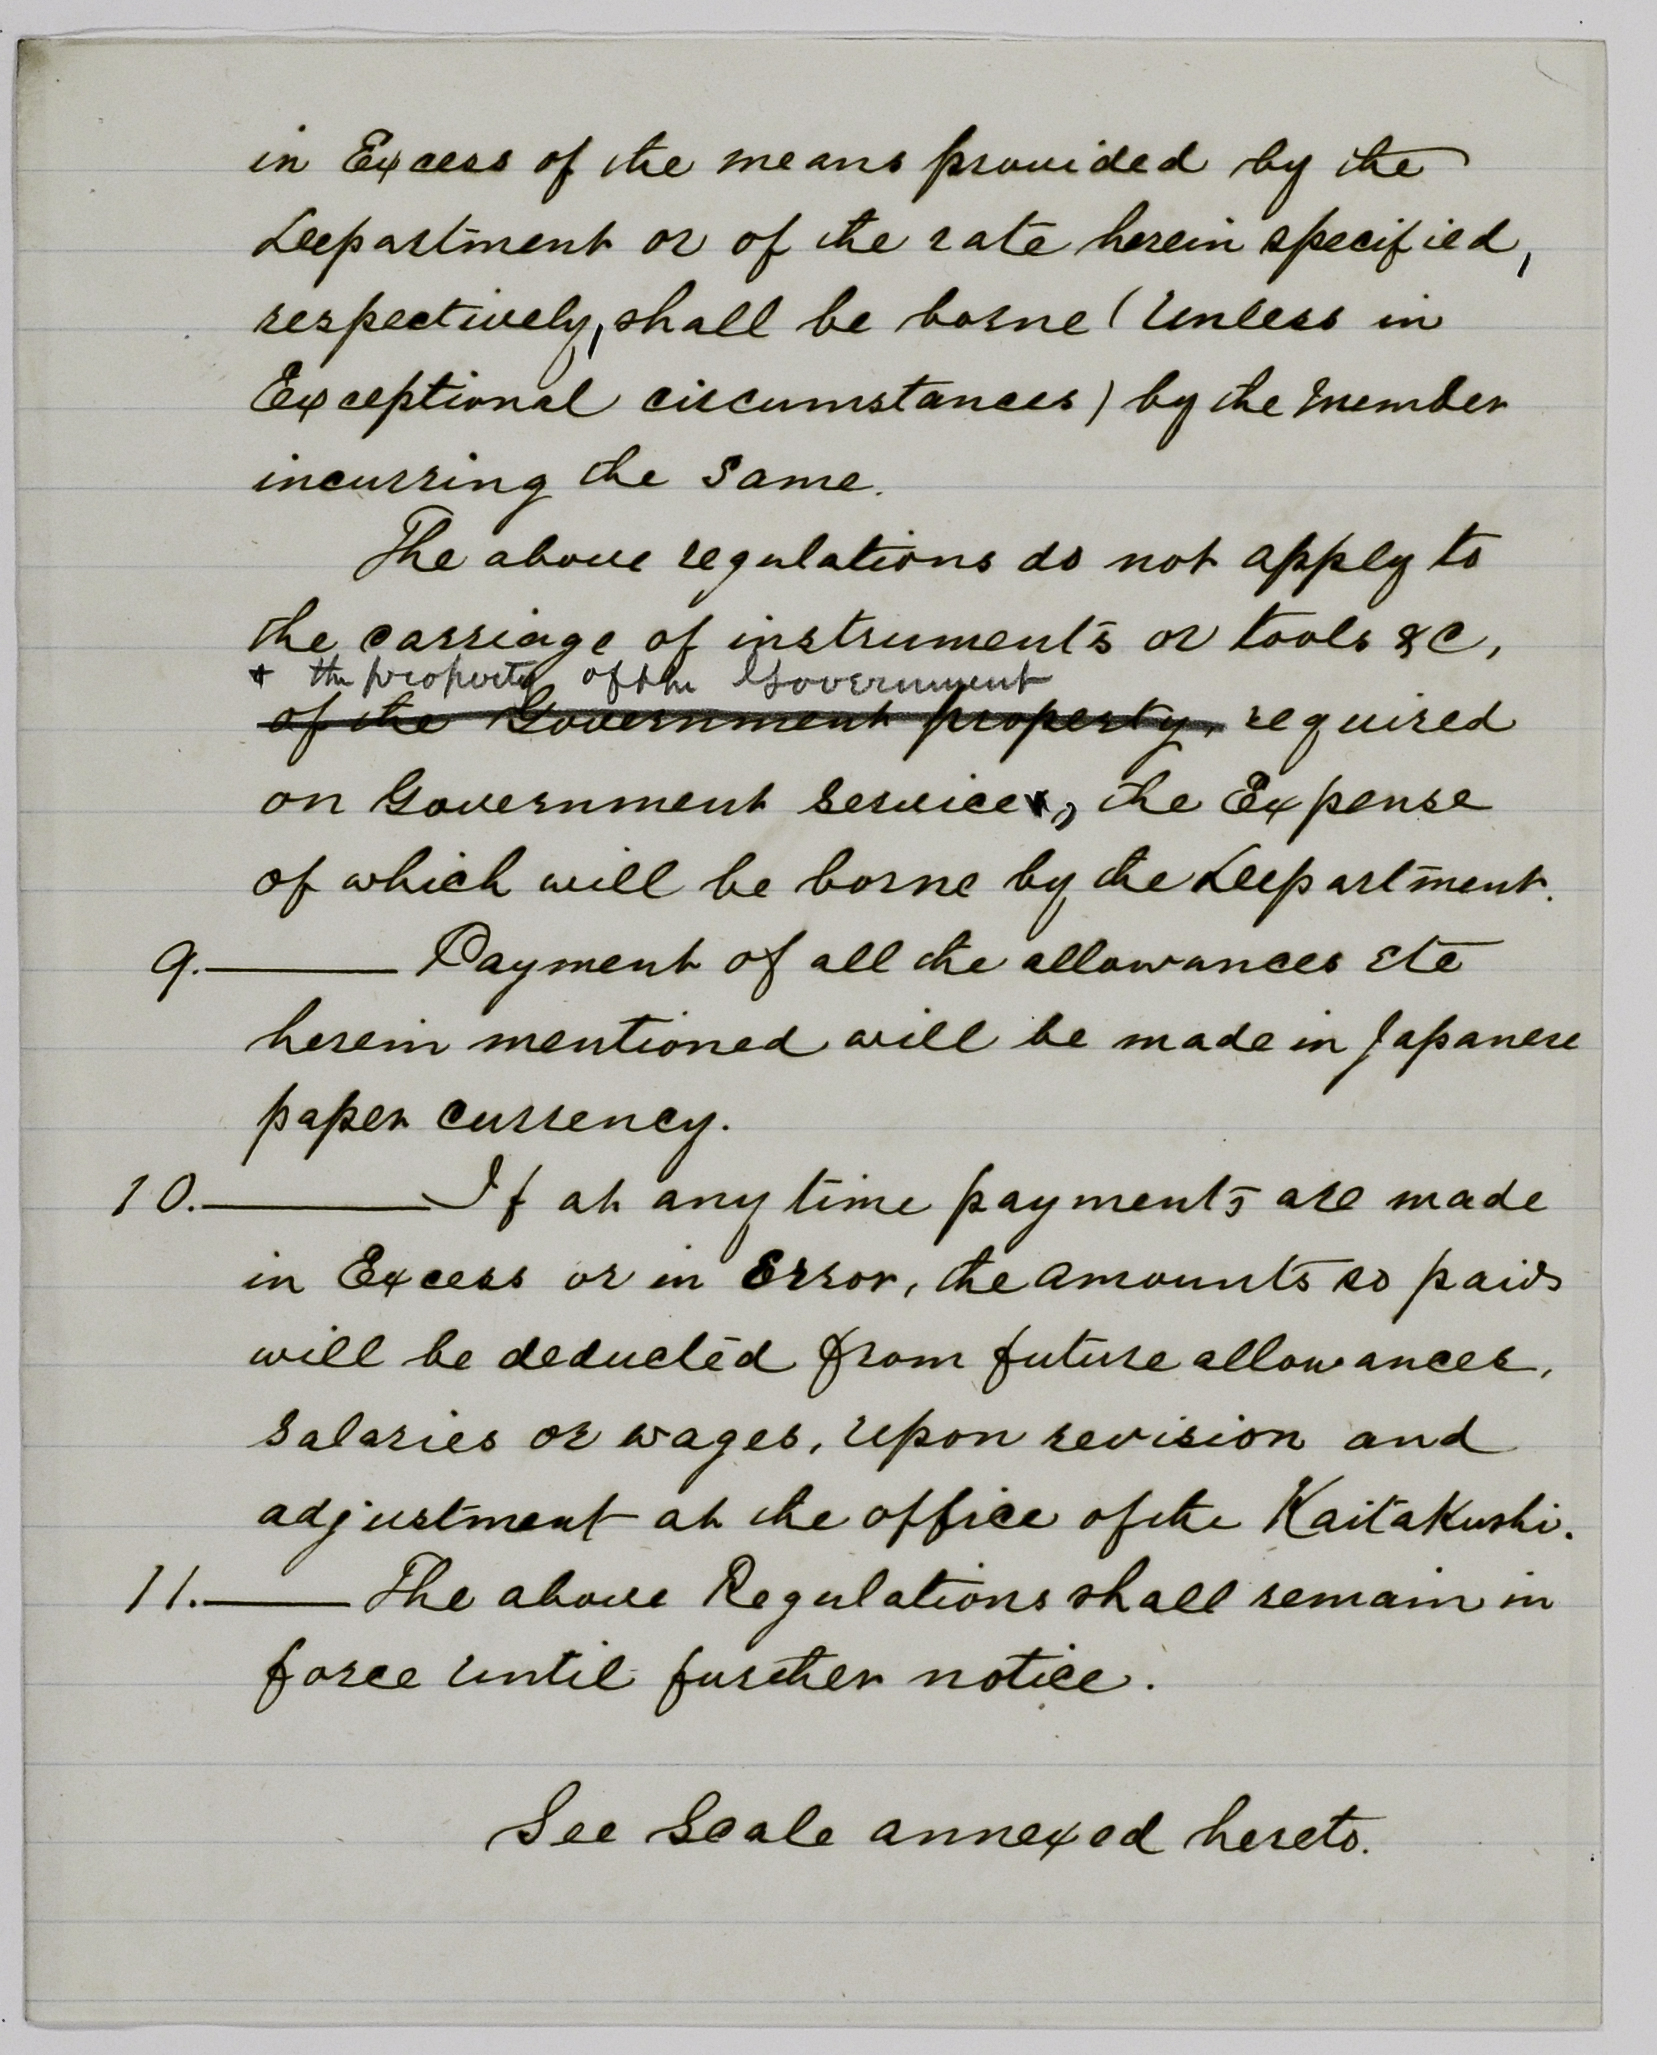 in Excess of the means provided by the
Department or of the rate herein specified,
respectively, shall be borne (unless in
Exceptional circumstances) by the member
incurring the same.
The above regulations do not apply to
the carriage of instruments or tools &c,
+ the property of the Government
of the Government property, required
on Government service, the Expense
of which will be borne by the Department.
9. Payment of all the allowances etc
herein mentioned will be made in Japanese
paper currency.
10. If at any time payments are made
in Excess or in Error, the amounts so paid
will be deducted from future allowances,
salaries or wages, upon revision and
adjustment at the office of the Kaitakushi.
11. The above Regulations shall remain in
force until further notice.
See Scale annexed hereto.